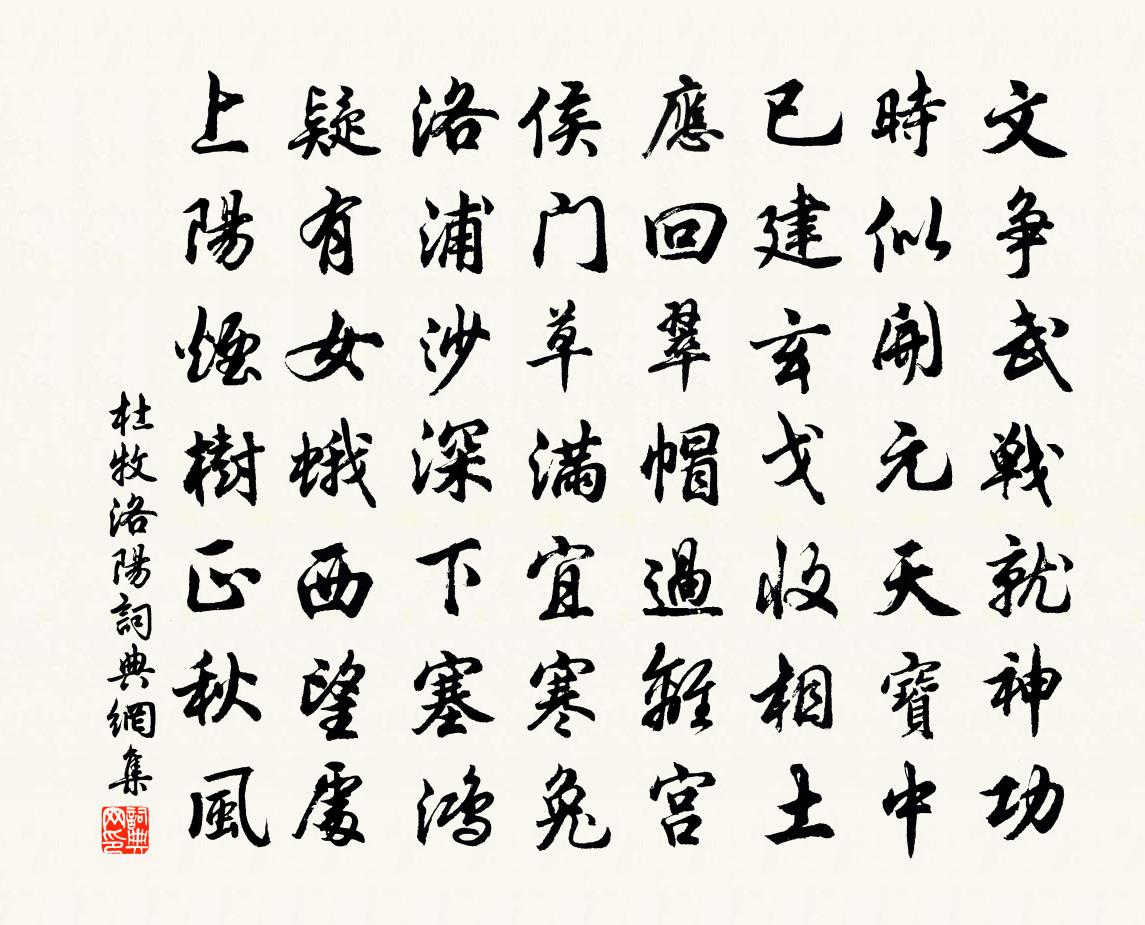 文争武戦就神功
時似開元天寶中
已建玄戈收相土
應回翠帽過離宮
侯门草满宜寒兔
洛浦沙深下塞鴻
疑有女蛾西望處
上陽煙樹正秋風
杜牧洛陽詞典網集
詞典网印